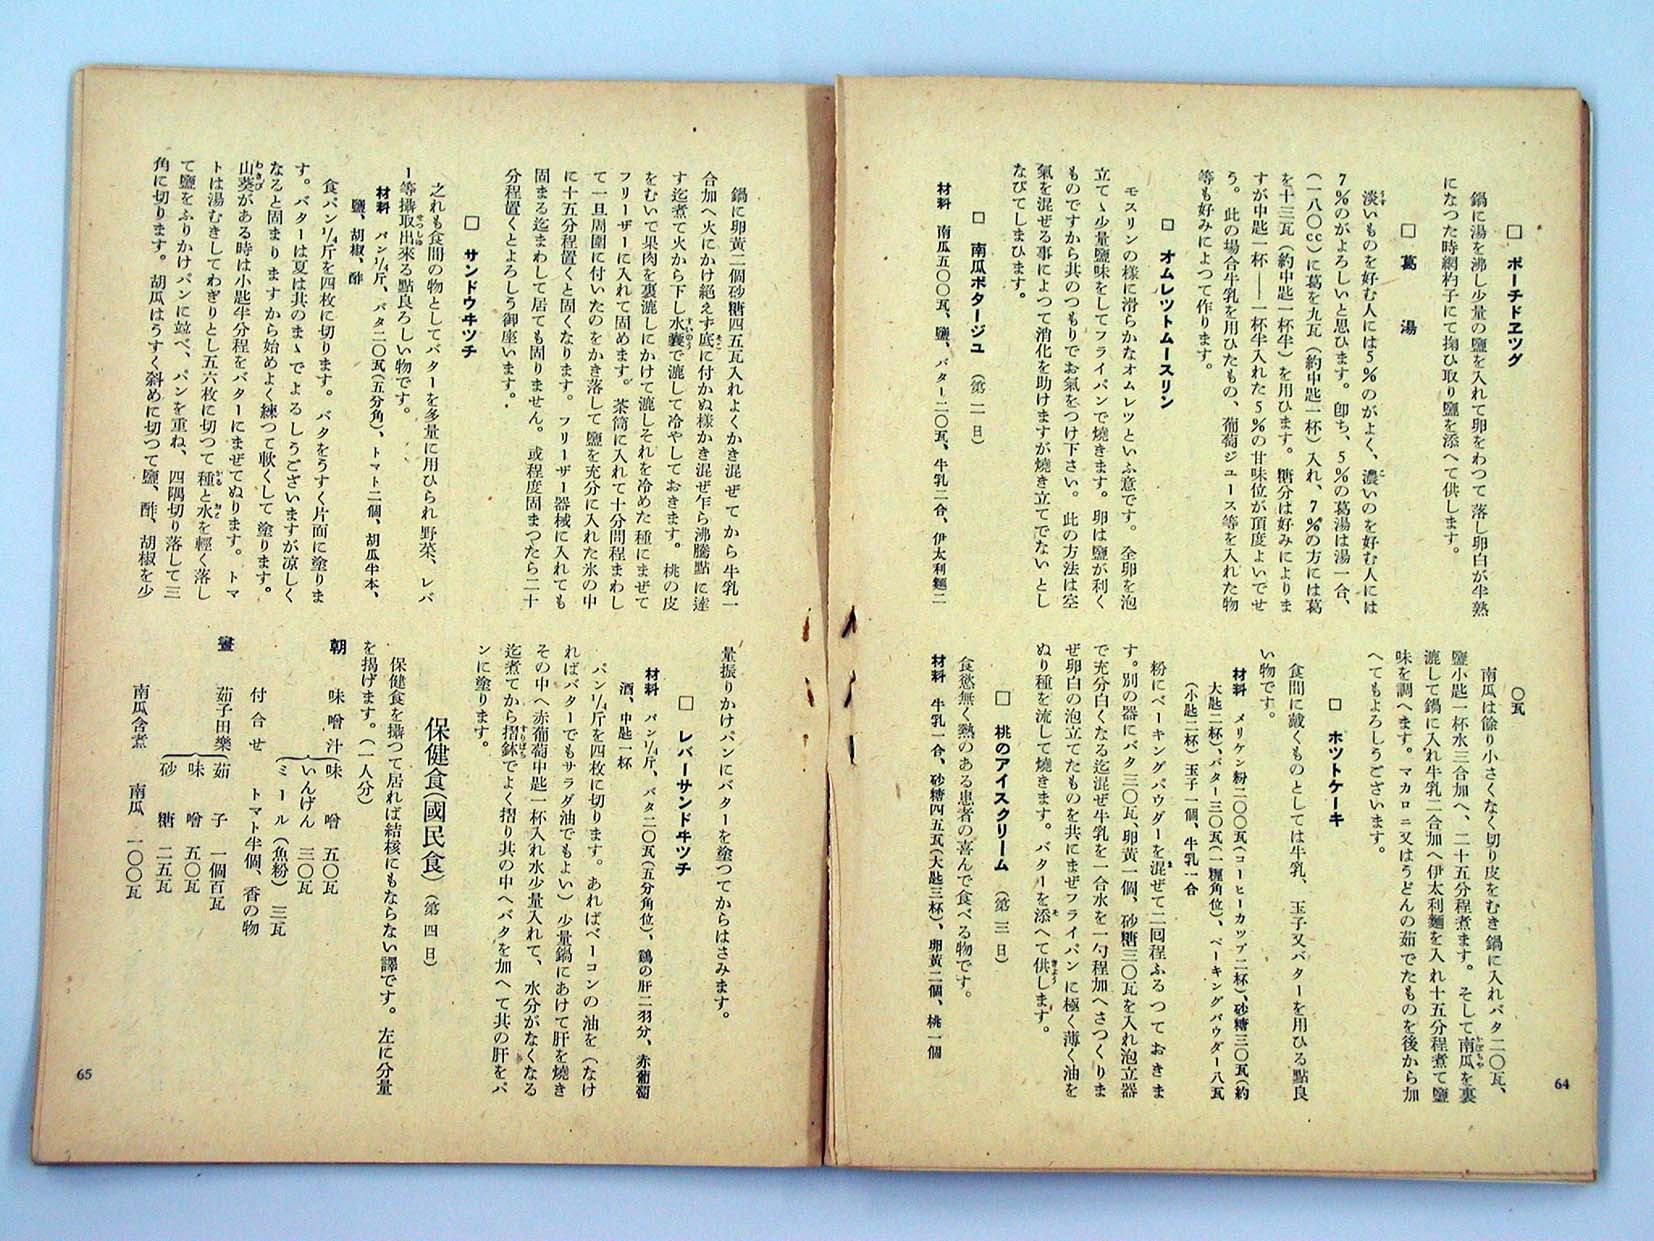 □ ポーチドヱツグ
鍋に湯を沸し少量の鹽を入れて卵をわつて落し卵白が半熟
になつた時網杓子にて掬ひ取り鹽を添へて供します。
□ 葛湯
淡いものを好む人には5％のがよく、濃いのを好む人には
7％のがよろしいと思ひます。卽ち、5％の葛湯は湯一合、
（一八〇cc）に葛を九瓦（約中匙一杯）入れ、7％の方には葛
を十三瓦（約中匙一杯半）を用ひます。糖分は好みによりま
すが中匙一杯――一杯半入れた5％の甘味位が頂度よいでせ
う。此の場合牛乳を用ひたもの、葡萄ジュース等を入れた物
等も好みによつて作ります。
□ オムレツトムースリン
モスリンの樣に滑らかなオムレツといふ意です。全卵を泡
立て〻少量鹽味をしてフライパンで燒きます。卵は鹽が利く
ものですから共のつもりでお氣をつけ下さい。此の方法は空
氣を混ぜる事によつて消化を助けますが燒き立てでないとし
なびてしまひます。
□ 南瓜ポタージユ （第二日）
材料 南瓜五〇〇瓦、鹽、バター二〇瓦、牛乳二合、伊太利麵二
〇瓦
南瓜は餘り小さくなく切り皮をむき鍋に入れバタ二〇瓦、
鹽小匙一杯水三合加へ、二十五分程煮ます。そして南瓜を裏
漉して鍋に入れ牛乳二合加へ伊太利麵を入れ十五分程煮て鹽
味を調へます。マカロニ又はうどんの茹でたものを後から加
へてもよろしうございます。
□ ホツトケーキ
食間に戴くものとしては牛乳、玉子又バターを用ひる點良
い物です。
材料 メリケン粉二〇〇瓦（コーヒーカツプ二杯）、砂糖三〇瓦（約
大匙二杯）、バター三〇瓦（一糎角位）、ベーキングパウダー八瓦
（小匙二杯）玉子一個、牛乳一合
粉にベーキングパウダーを混ぜて二囘程ふるつておきま
す。別の器にバタ三〇瓦、卵黄一個、砂糖三〇瓦を入れ泡立器
で充分白くなる迄混ぜ牛乳を一合水を一勺程加へさつくりま
ぜ卵白の泡立てたものを共にまぜフライパンに極く薄く油を
ぬり種を流して燒きます。バターを添へて供します。
□ 桃のアイスクリーム （第三日）
食慾無く熱のある患者の喜んで食べる物です。
材料 牛乳一合、砂糖四五瓦（大匙三杯）、卵黄二個、桃一個
64
鍋に卵黄二個砂糖四五瓦入れよくかき混ぜてから牛乳一
合加へ火にかけ絶えず底に付かぬ樣かき混ぜ乍ら沸騰點に達
す迄煮て火から下し水嚢で漉して冷やしておきます。桃の皮
をむいて果肉を裏漉しにかけて漉しそれを冷めた種にまぜて
フリーザーに入れて固めます。茶筒に入れて十分間程まわし
て一旦周圍に付いたのをかき落して鹽を充分に入れた氷の中
に十五分程置くと固くなります。フリーザー器械に入れても
固まる迄まわして居ても固りません。或程度固まつたら二十
分程置くとよろしう御座います。
□ サンドウヰツチ
之れも食間の物としてバターを多量に用ひられ野菜、レバ
ー等攝取出來る點良ろしい物です。
材料 パン1/4斤、バタ二〇瓦（五分角）、トマト二個、胡瓜半本、
鹽、胡椒、酢
食パン1/4斤を四枚に切ります。バタをうすく片面に塗りま
す。バターは夏は共のま〻でよろしうございますが凉しく
なると固まりますから始めよく練つて軟くして塗ります。
山葵がある時は小匙半分程をバターにまぜてぬります。トマ
トは湯むきしてわぎりとし五六枚に切つて種と水を輕く落し
て鹽をふりかけパンに竝べ、パンを重ね、四隅切り落して三
角に切ります。胡瓜はうすく斜めに切つて鹽、酢、胡椒を少
量振りかけパンにバターを塗つてからはさみます。
□ レバーサンドヰツチ
材料 パン1/4斤、バタ二〇瓦（五分角位）、鷄の肝二羽分、赤葡萄
酒、中匙一杯
パン1/4斤を四枚に切ります。あればベーコンの油を（なけ
ればバターでもサラダ油でもよい）少量鍋にあけて肝を燒き
その中へ赤葡萄中匙一杯入れ水少量入れて、水分がなくなる
迄煮てから摺鉢でよく摺り共の中へバタを加へて共の肝をパ
ンに塗ります。
保健食（國民食）（第四日）
保健食を攝つて居れば結核にもならない譯です。左に分量
を揭げます。（一人分）
朝 味噌汁 味噌 五〇瓦
いんげん 三〇瓦
ミール（魚粉） 三瓦
付合せ トマト半個、香の物
晝 茄子田樂 茄子 一個百瓦
味噌 五〇瓦
砂糖 二五瓦
南瓜含煮 南瓜 一〇〇瓦
65